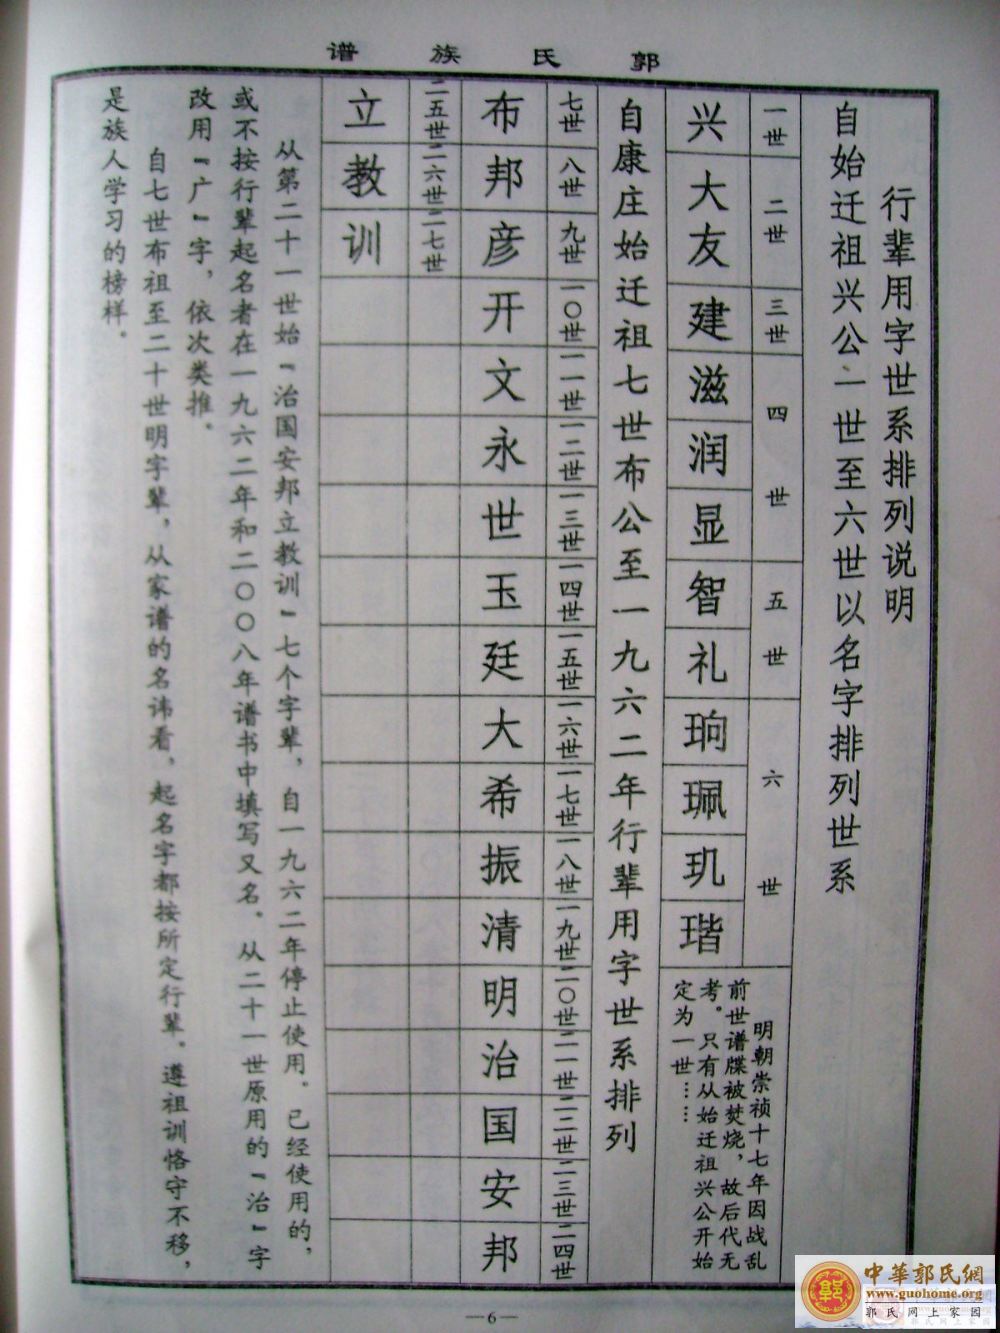 郭氏族谱
行辈用字世系排列说明
自始迁祖兴公一世至六世以名字排列世系
一世
二世
三世
四世
五世
六世
兴
大
友
建
滋
润
显
智
礼
珦
珮
玑
瑎
明朝崇祯十七年因战乱
前世谱牒被焚烧，故后代无
考。只有从始迁祖兴公开始
定为一世……
自康庄始迁祖七世布公至一九六二年行辈用字世系排列
七世
八世
九世
一〇世
一一世
一二世
一三世
一四世
一五世
一六世
一七世
一八世
一九世
二〇世
二一世
二二世
二三世
二四世
布
邦
彦
开
文
永
世
玉
廷
大
希
振
清
明
治
国
安
邦
二五世
二六世
二七世
立
教
训
从第二十一世始“治国安邦立教训”七个字辈，自一九六二年停止使用．已经使用的，
或不按行辈起名者在一九六二年和二〇〇八年谱书中填写又名．从二十一世原用的“治”字
改用“广”字，依次类推．
自七世布祖至二十世明字辈，从家谱的名讳看，起名字都按所定行辈．遵祖训恪守不移，
是族人学习的榜样．
—6—
中華郭氏網
www.guohome.org
郭氏网上家园